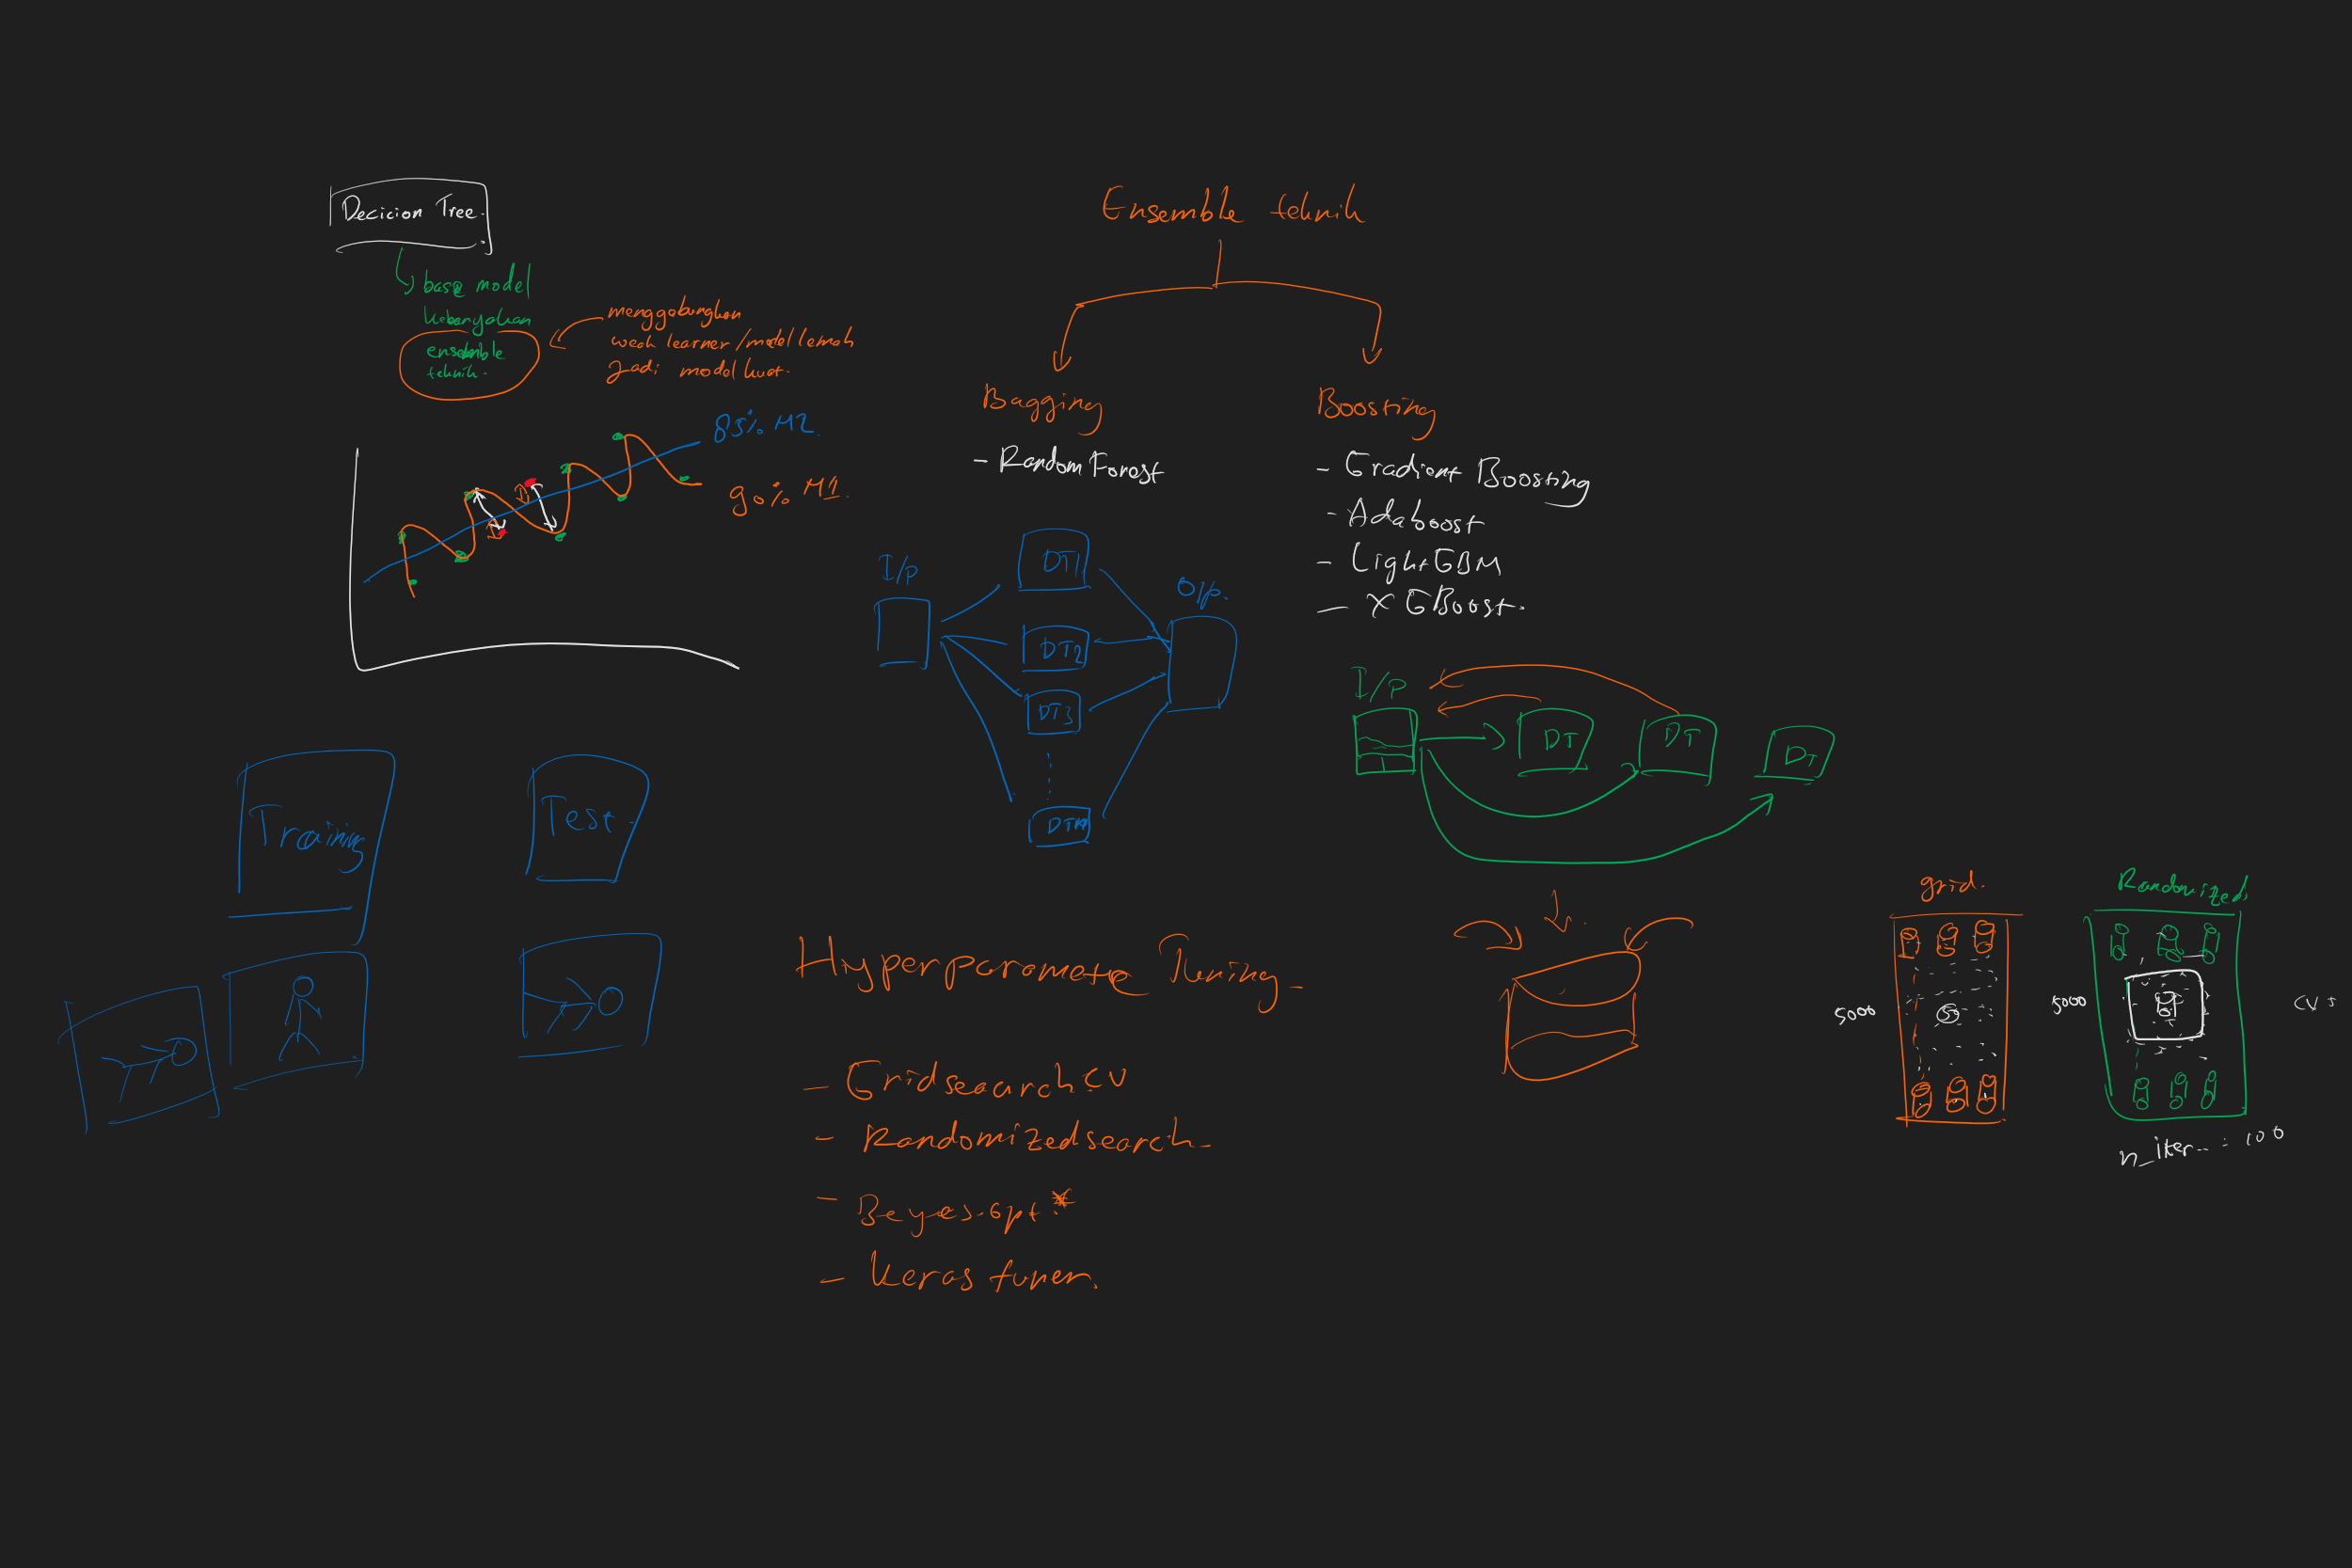 Decicion Tree.
base model
kebanyakan
ensemble
teknik.
menggabungkan
weak learner/model lemah
Jadi model kuat.
85% M2.
90% M1.
Training
Test.
Ensemble teknik
Bagging
- Random Forest
Boosting
- Gradient Boosting
- Adaboost
- LightGBM
- XGBoost.
I/P
DT1
DT2
DT3
O/p.
I/P
DT
DT
DT
Hyperparamete Tuning
- GridsearchCV
- Randomizedsearch
- Beyes.opt.*
- Keras tuner.
grid.
5000
Randomized
5000
n_iter = 100